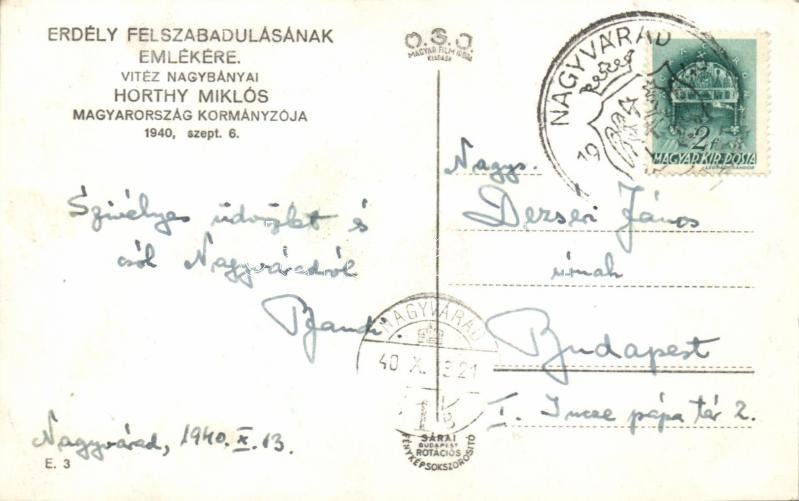 ERDÉLY FELSZABADULÁSÁNAK
EMLÉKÉRE.
VITÉZ NAGYBÁNYAI
HORTHY MIKLÓS
MAGYARORSZÁG KORMÁNYZÓJA
1940, szept. 6.
O.S.J.
MAGYAR FILM IRODA
KIADÁSA
NAGYVÁRAD
19
2f
MAGYAR KIR. POSTA
Szivélyes üdvözlet és
csók Nagyváradról
Bandi
Nagyvárad, 1940. X. 13.
E. 3
Nagys.
Dezseri János
úrnak
Budapest
I. Incze pápa tér 2.
NAGYVÁRAD
40 X. 13 21
SÁRAI
BUDAPEST
ROTÁCIÓS
FÉNYKÉPSOKSZOROSITÓ